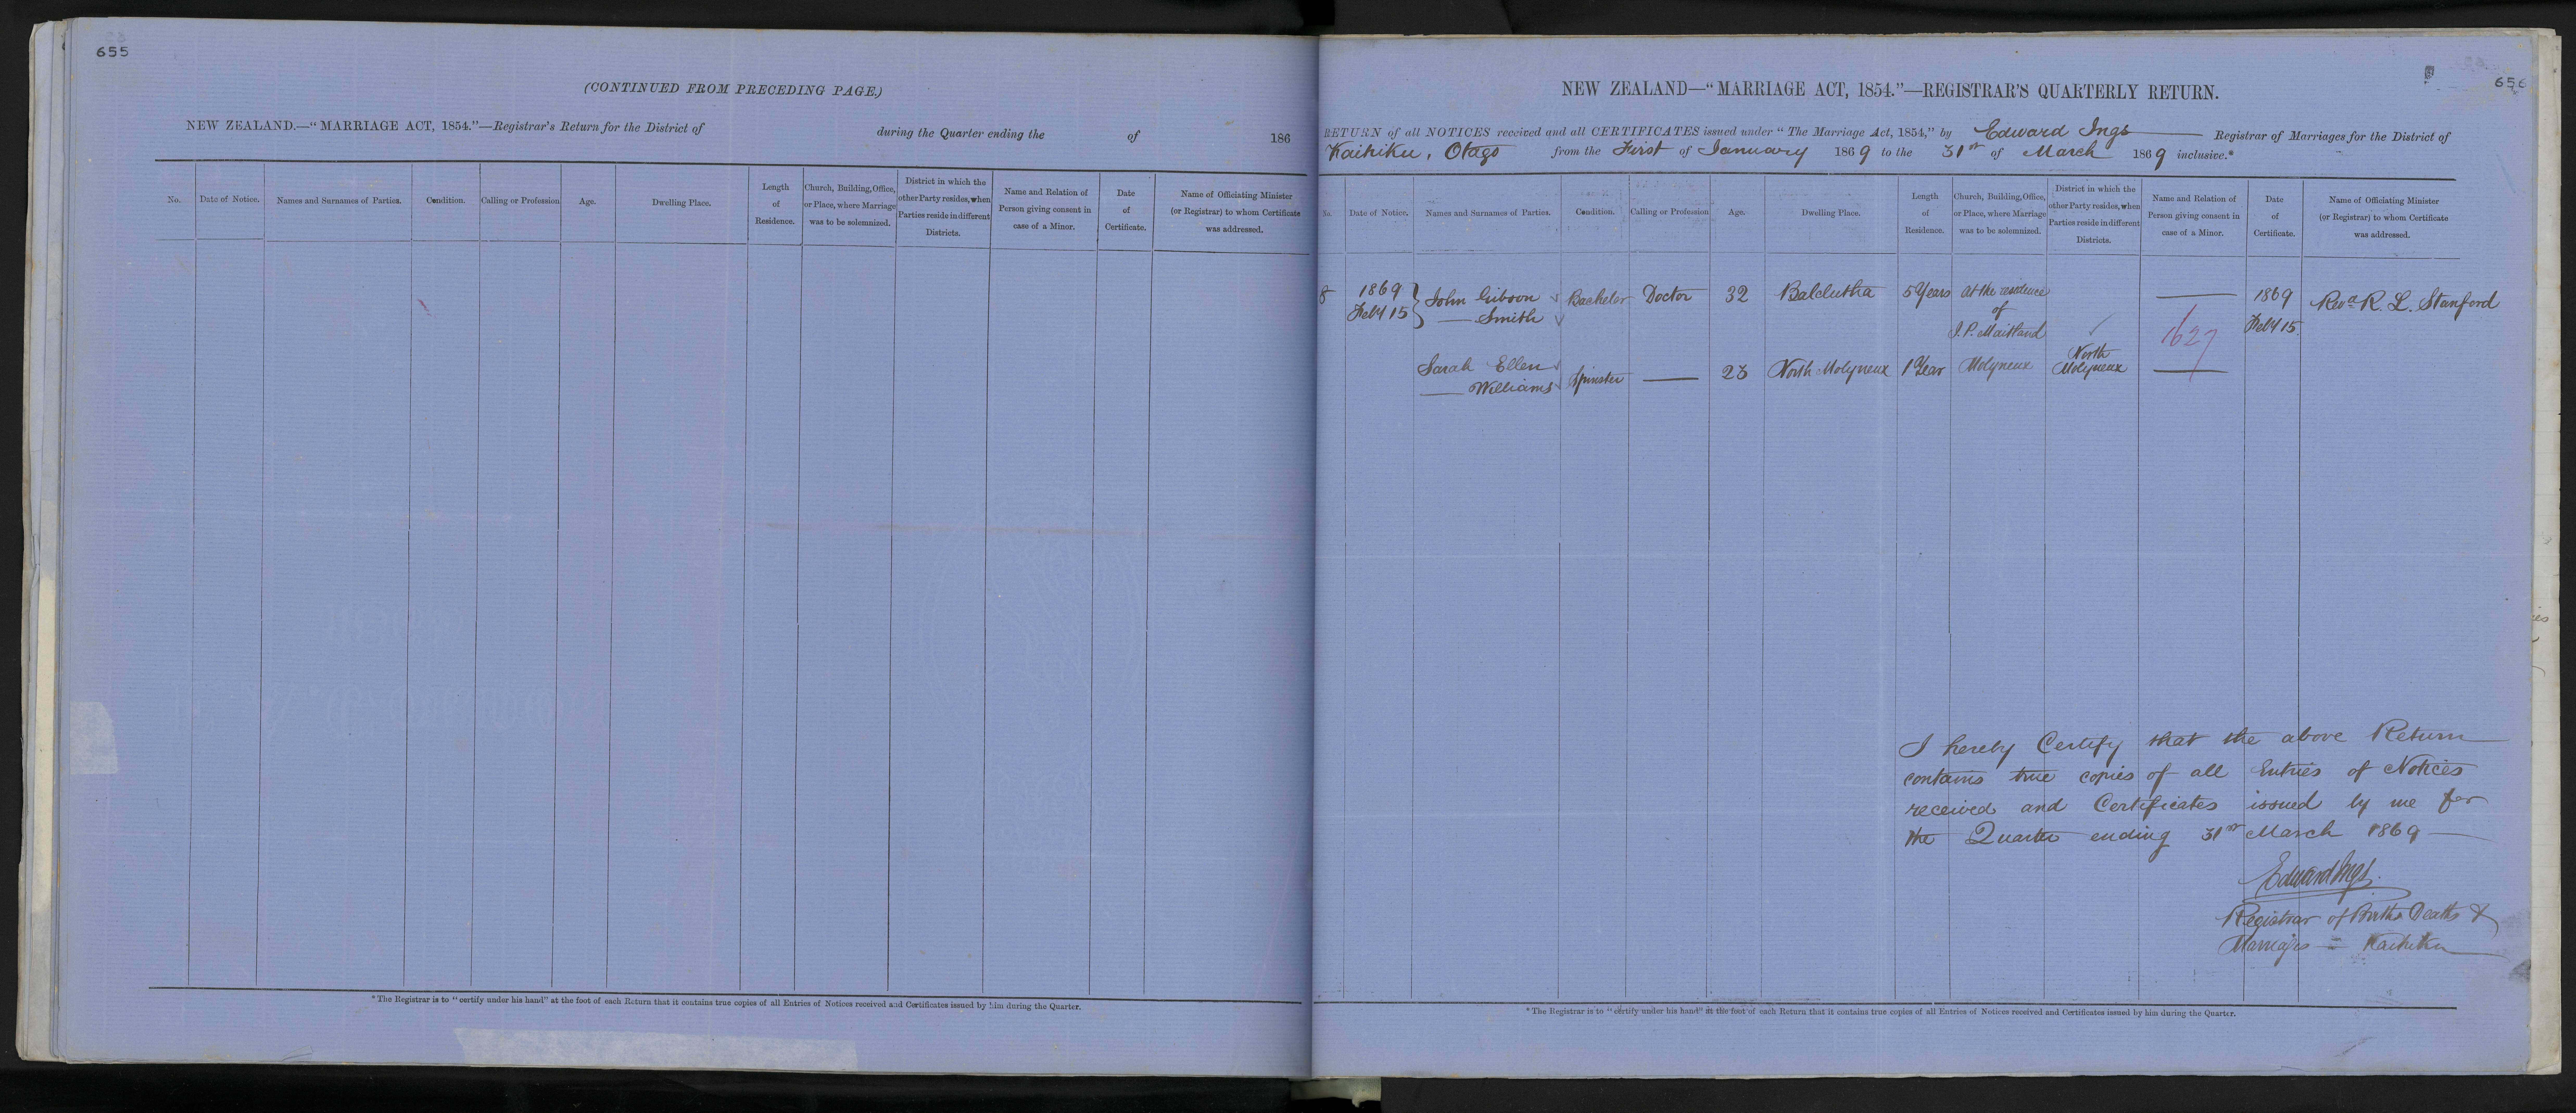 655
(CONTINUED FROM PRECEDING PAGE.)
NEW ZEALAND.—"MARRIAGE ACT, 1854."—Registrar's Return for the District of during the Quarter ending the of 186
No. Date of Notice. Names and Surnames of Parties. Condition. Calling or Profession Age. Dwelling Place. Length of Residence. Church, Building, Office, or Place, where Marriage was to be solemnized. District in which the other Party resides, when Parties reside in different Districts. Name and Relation of Person giving consent in case of a Minor. Date of Certificate. Name of Officiating Minister (or Registrar) to whom Certificate was addressed.
*The Registrar is to "certify under his hand" at the foot of each Return that it contains true copies of all Entries of Notices received and Certificates issued by him during the Quarter.
656
NEW ZEALAND—"MARRIAGE ACT, 1854."—REGISTRAR'S QUARTERLY RETURN.
RETURN of all NOTICES received and all CERTIFICATES issued under "The Marriage Act, 1854," by Edward Ings Registrar of Marriages for the District of
Kaihiku, Otago from the First of January 1869 to the 31st of March 1869 inclusive.*
No. Date of Notice. Names and Surnames of Parties. Condition. Calling or Profession Age. Dwelling Place. Length of Residence. Church, Building, Office, or Place, where Marriage was to be solemnized. District in which the other Party resides, when Parties reside in different Districts. Name and Relation of Person giving consent in case of a Minor. Date of Certificate. Name of Officiating Minister (or Registrar) to whom Certificate was addressed.
8 1869 John Gibson Bachelor Doctor 32 Balclutha 5 Years at the residence 1869 Revd R. L. Stanford
Feby 15 Smith of Feby 15
J. P. Maitland 1627
Sarah Ellen Spinster 23 North Molyneux 1 Year Molyneux North
Williams Molyneux
I hereby Certify that the above Return
contains true copies of all Entries of Notices
received and Certificates issued by me for
the Quarter ending 31st March 1869
Edward Ings.
Registrar of Births Deaths &
Marriages = Kaihiku
*The Registrar is to "certify under his hand" at the foot of each Return that it contains true copies of all Entries of Notices received and Certificates issued by him during the Quarter.